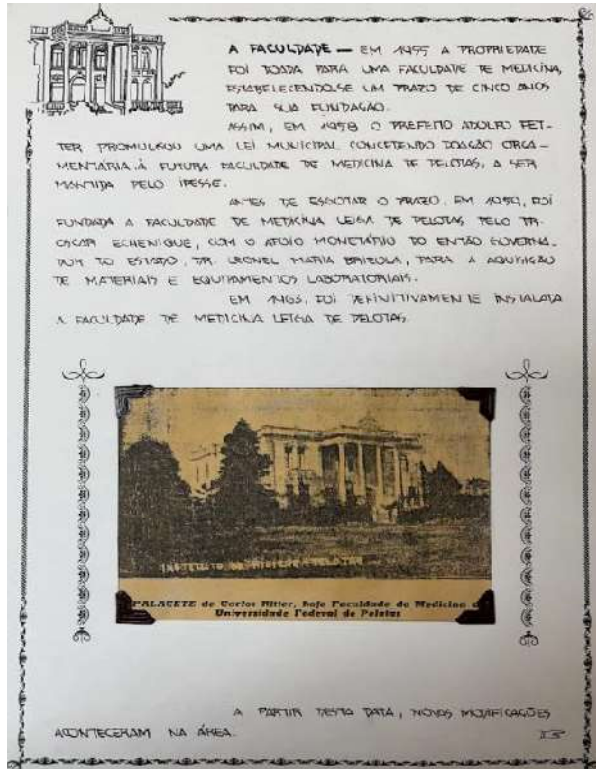 A FACULDADE — EM 1955 A PROPRIEDADE
FOI DOADA PARA UMA FACULDADE DE MEDICINA,
ESTABELECENDO-SE UM PRAZO DE CINCO ANOS
PARA SUA FUNDAÇÃO.
ASSIM, EM 1958 O PREFEITO ADOLFO FET-
TER PROMULGOU UMA LEI MUNICIPAL CONCEDENDO DOAÇÃO ORÇA-
MENTÁRIA À FUTURA FACULDADE DE MEDICINA DE PELOTAS, A SER
MANTIDA PELO IPESSE.
ANTES DE ESGOTAR O PRAZO, EM 1959, FOI
FUNDADA A FACULDADE DE MEDICINA LEIGA DE PELOTAS PELO DR.
OSCAR ECHENIQUE, COM O APOIO MONETÁRIO DO ENTÃO GOVERNA-
DOR DO ESTADO, DR. LEONEL MARIA BRIZOLA, PARA A AQUISIÇÃO
DE MATERIAIS E EQUIPAMENTOS LABORATORIAIS.
EM 1963, FOI DEFINITIVAMENTE INSTALADA
A FACULDADE DE MEDICINA LEIGA DE PELOTAS.
INSTITUTO DE PELOTAS
PALACETE de Carlos Ritter, hoje Faculdade de Medicina
Universidade Federal de Pelotas
A PARTIR DESTA DATA, NOVAS MODIFICAÇÕES
ACONTECERAM NA ÁREA.